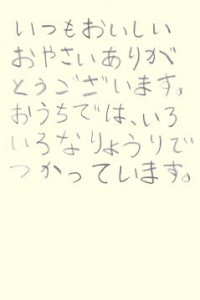 いつもおいしい
おやさいありが
とうございます,
おうちでは、いろ
いろなりょうりで
つかっています。